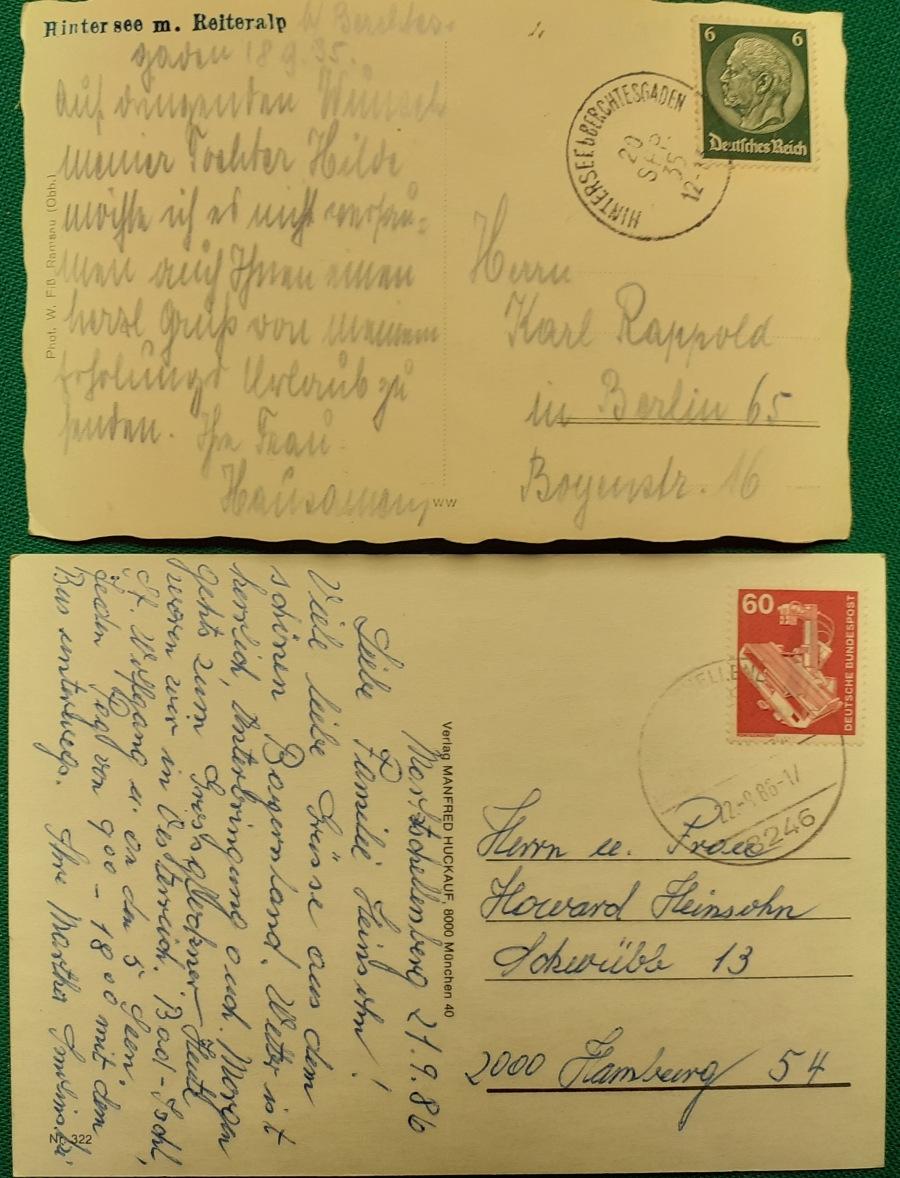 Hintersee m. Reiteralp b/ Berchtes-
gaden 18 9. 35.
Auf dringenden Wunsch
meiner Tochter Hilde
möchte ich es nicht versäu-
men auch Ihnen einen
herzl Gruß von meinem
Erholungs Urlaub zu
senden. Ihre Frau
Phot. W. Fiß, Ramsau (Obb.)
WW
HINTERSEE b BERCHTESGADEN
20
SEP.
35
12-
6 6
Deutsches Reich
Herrn
Karl Rappold
in Berlin 65
Bogenstr. 16
Marktschellenberg 21.9.86
Liebe Familie Heinsohn!
Viele liebe Grüsse aus dem
schönen Bayernland. Wetter ist
herrlich, Unterbringung auch. Morgen
gehts zum Grossglockner. Heute
waren wir in Österreich. Bad-Ischl,
St. Wolfgang u. an den 5 Seen.
Jeden Tag von 9 00 - 18 00 mit dem
Bus unterwegs. Ihre Martha
Nr. 322
Verlag MANFRED HUCKAUF, 8000 München 40
60
DEUTSCHE BUNDESPOST
22.-9.86-17
8246
Herrn u. Frau
Howard Heinsohn
2000 Hamburg 54